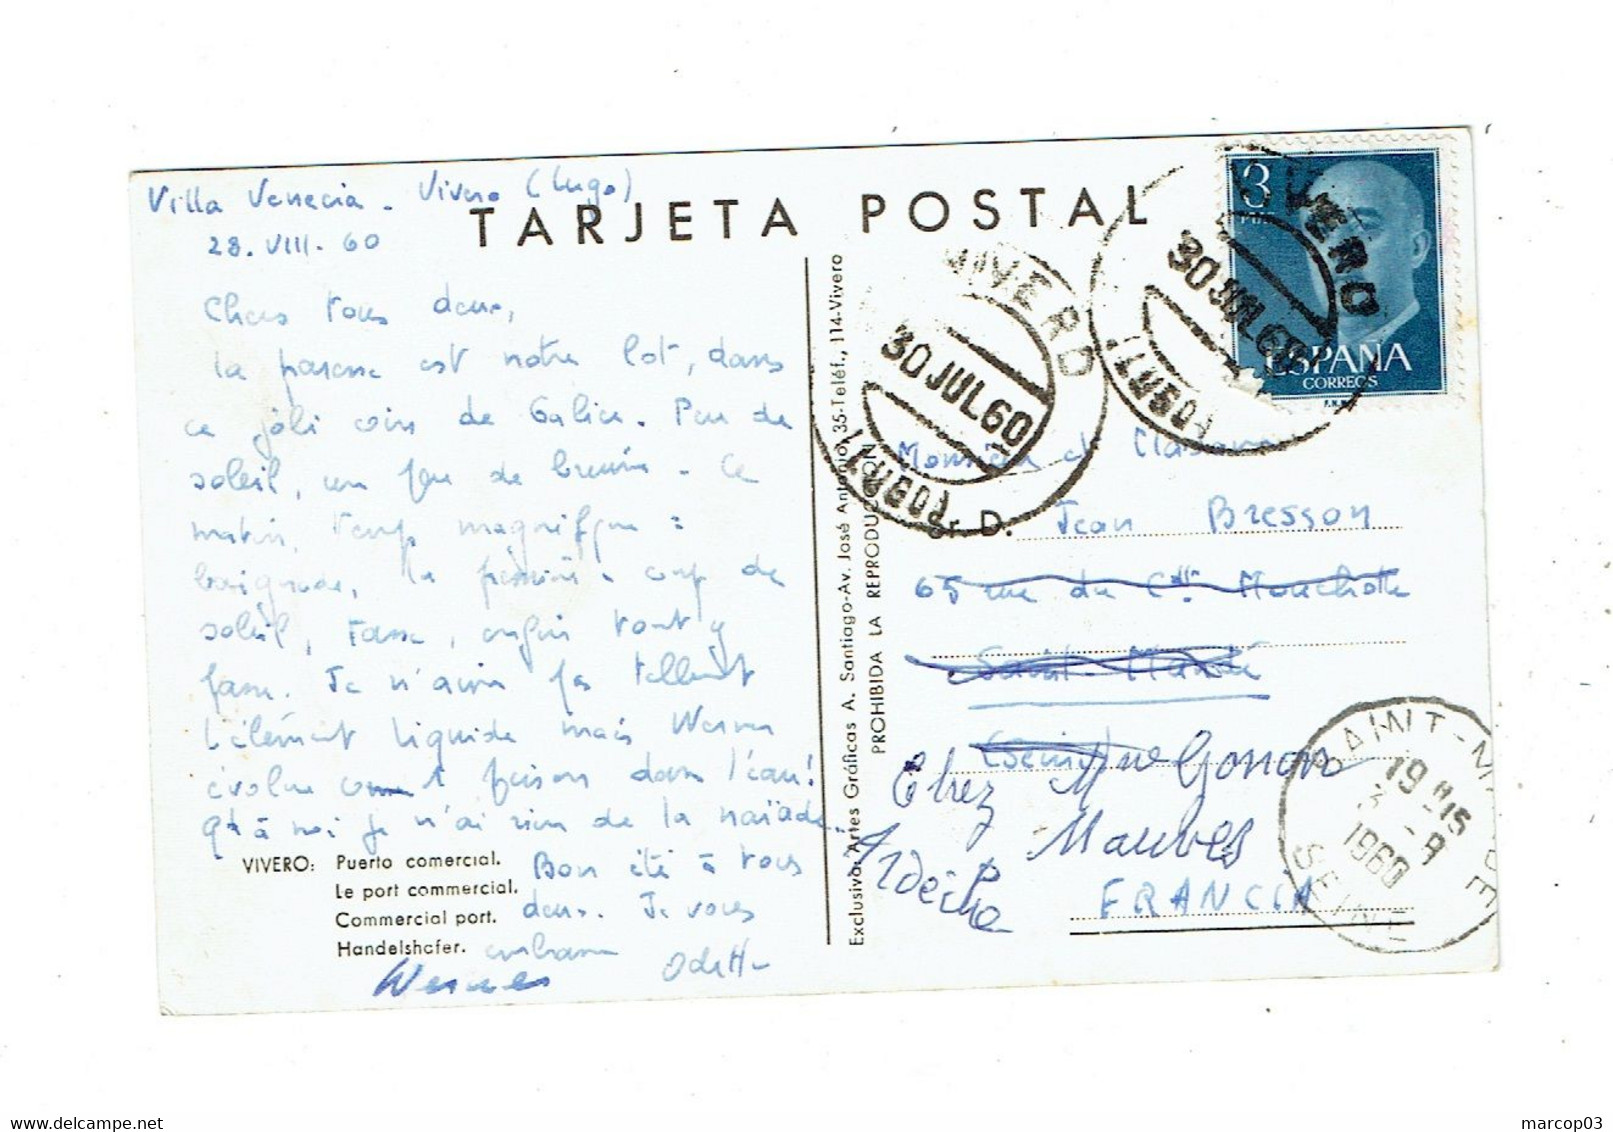 Villa Venecia - Vivero (Lugo)
28. VIII. 60
TARJETA POSTAL
Chers tous deux,
La paresse est notre lot, dans
ce joli coin de Galice. Peu de
soleil, un peu de bruine. Ce
matin, temps magnifique :
baignade, la première, coup de
soleil, tasse, enfin tout y
passe. Je n'aime pas tellement
l'élément liquide mais Werner
évolue comt poisson dans l'eau!
Qt à moi je n'ai rien de la naïade.
Bon été à vous
deux. Je vous
embrasse
Odette
Werner
VIVERO: Puerto comercial.
Le port commercial.
Commercial port.
Handelshafer.
Exclusiva: Artes Gráficas A. Santiago-Av. José Antonio, 35-Teléf., 114-Vivero
PROHIBIDA LA REPRODUCCION
VIVERO
30 JUL 60
(LUGO)
VIVERO
30 JUL 60
(LUGO)
3
PTAS
ESPAÑA
CORREOS
F.N.M.
Monsieur et Madame
D. Jean Bresson
65 rue du Ct. Mouchotte
Saint-Mandé
(Seine)
Chez Mme Gonon
Mauves
Ardèche
FRANCIA
SAINT-MANDE
19H15
3-8
1960
SEINE
marcop03